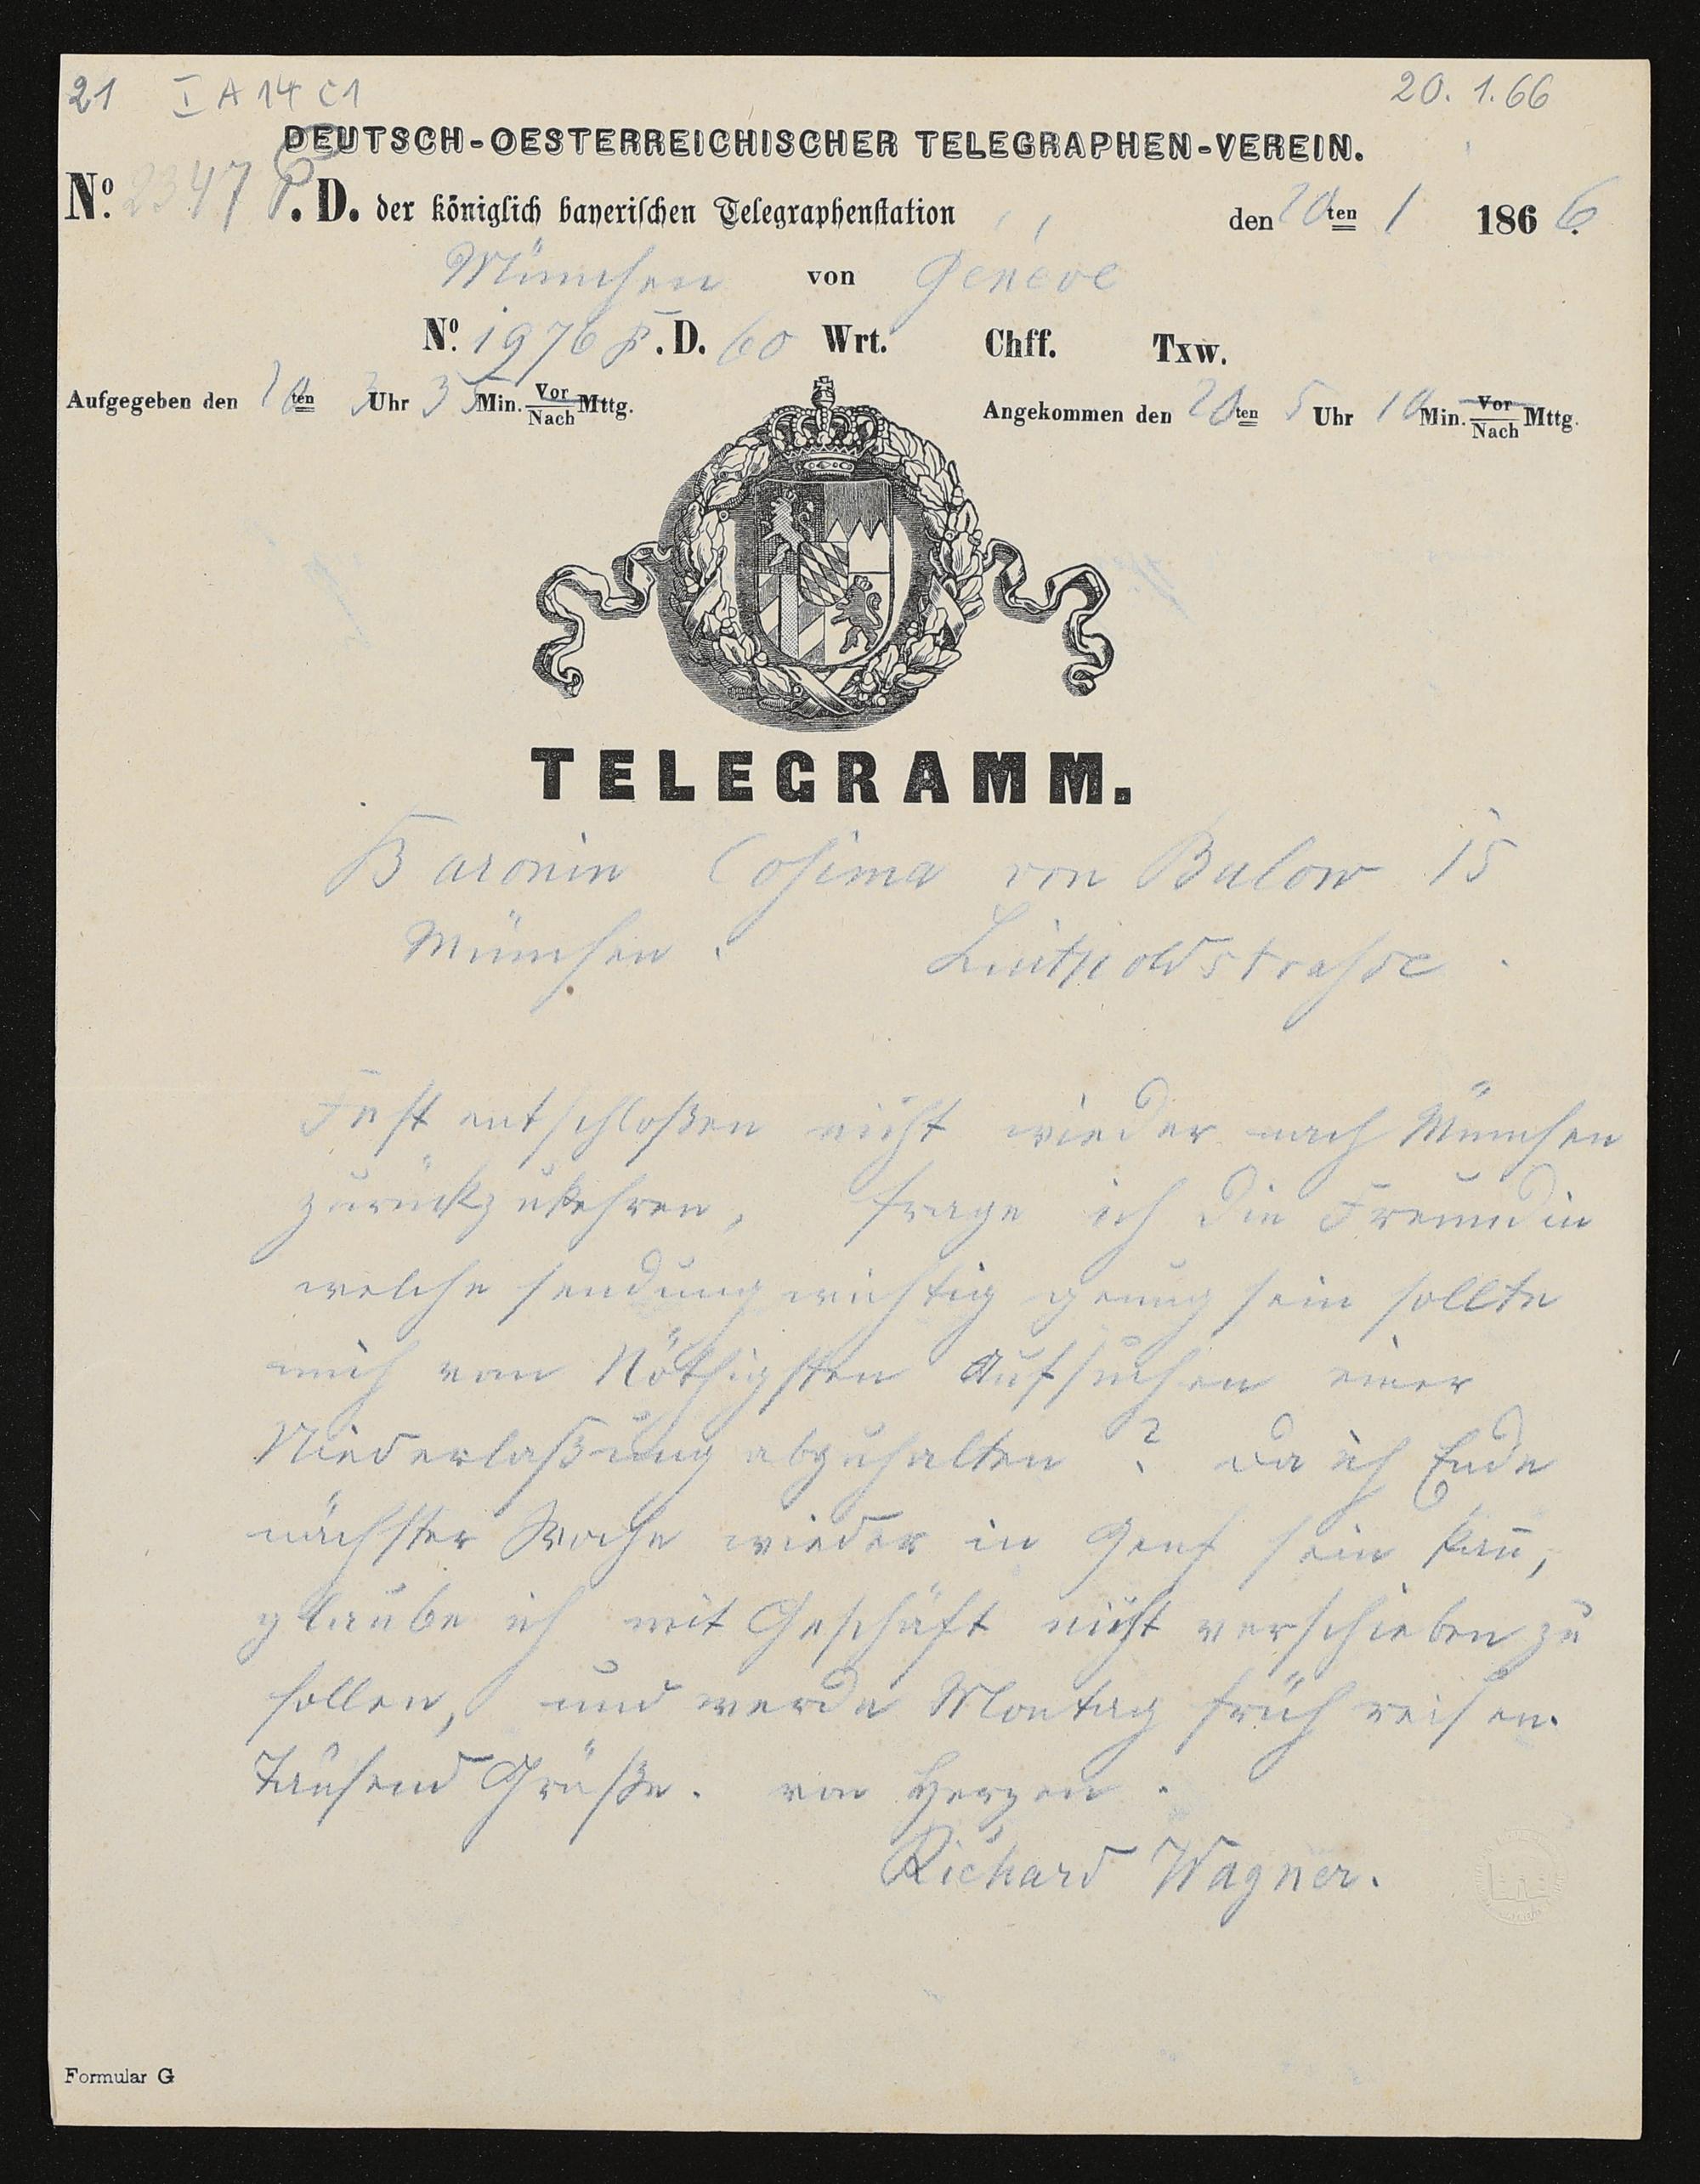 21 I A 14 C1 20. 1. 66
DEUTSCH-OESTERREICHISCHER TELEGRAPHEN-VEREIN.
No. 2347 P. D. der königlich bayerischen Telegraphenstation den 20ten 1 1866.
München von Genéve
No. 1976 P. D. 60 Wrt. Chff. Txw.
Aufgegeben den 20ten 3 Uhr 35 Min. Vor/Nach Mttg. Angekommen den 20ten 5 Uhr 10 Min. Vor/Nach Mttg.
TELEGRAMM.
Baronin Cosima von Bulow 15
München. Luitpoldstraße.
Fest entschloßen nicht wieder nach München
zurückzukehren, frage ich die Freundin
welche sendung wichtig genug sein sollte
mich vom Nöthigsten Aufsuchen einer
Niederlaßung abzuhalten? Da ich Ende
nächster Woche wieder in Genf sein kan̄,
glaube ich mit Geschäft nicht verschieben zu
sollen, und werde Montag früh reisen.
Tausend Grüße. von Herzen.
Richard Wagner.
Formular G